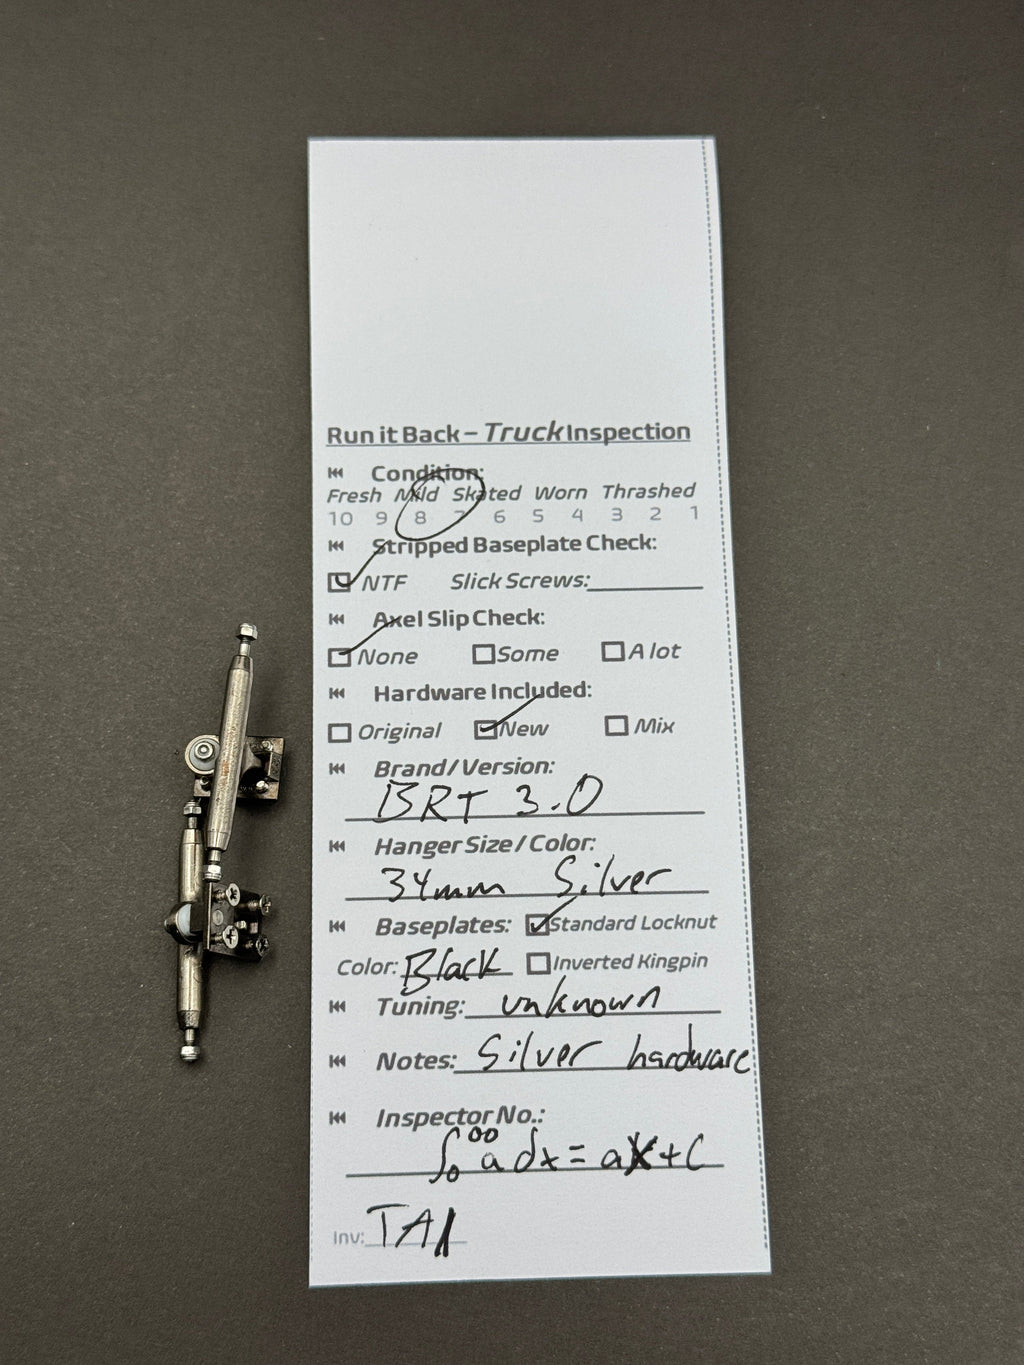 Run it Back – Truck Inspection
Condition:
Fresh Mild Skated Worn Thrashed
10 9 8 7 6 5 4 3 2 1
Stripped Baseplate Check:
NTF Slick Screws:
Axel Slip Check:
None Some A lot
Hardware Included:
Original New Mix
Brand/Version:
BRT 3.0
Hanger Size/Color:
34mm Silver
Baseplates: Standard Locknut
Color: Black Inverted Kingpin
Tuning: unknown
Notes: Silver hardware
Inspector No.:
∫₀^∞ a dx = ax + C
Inv: TA1